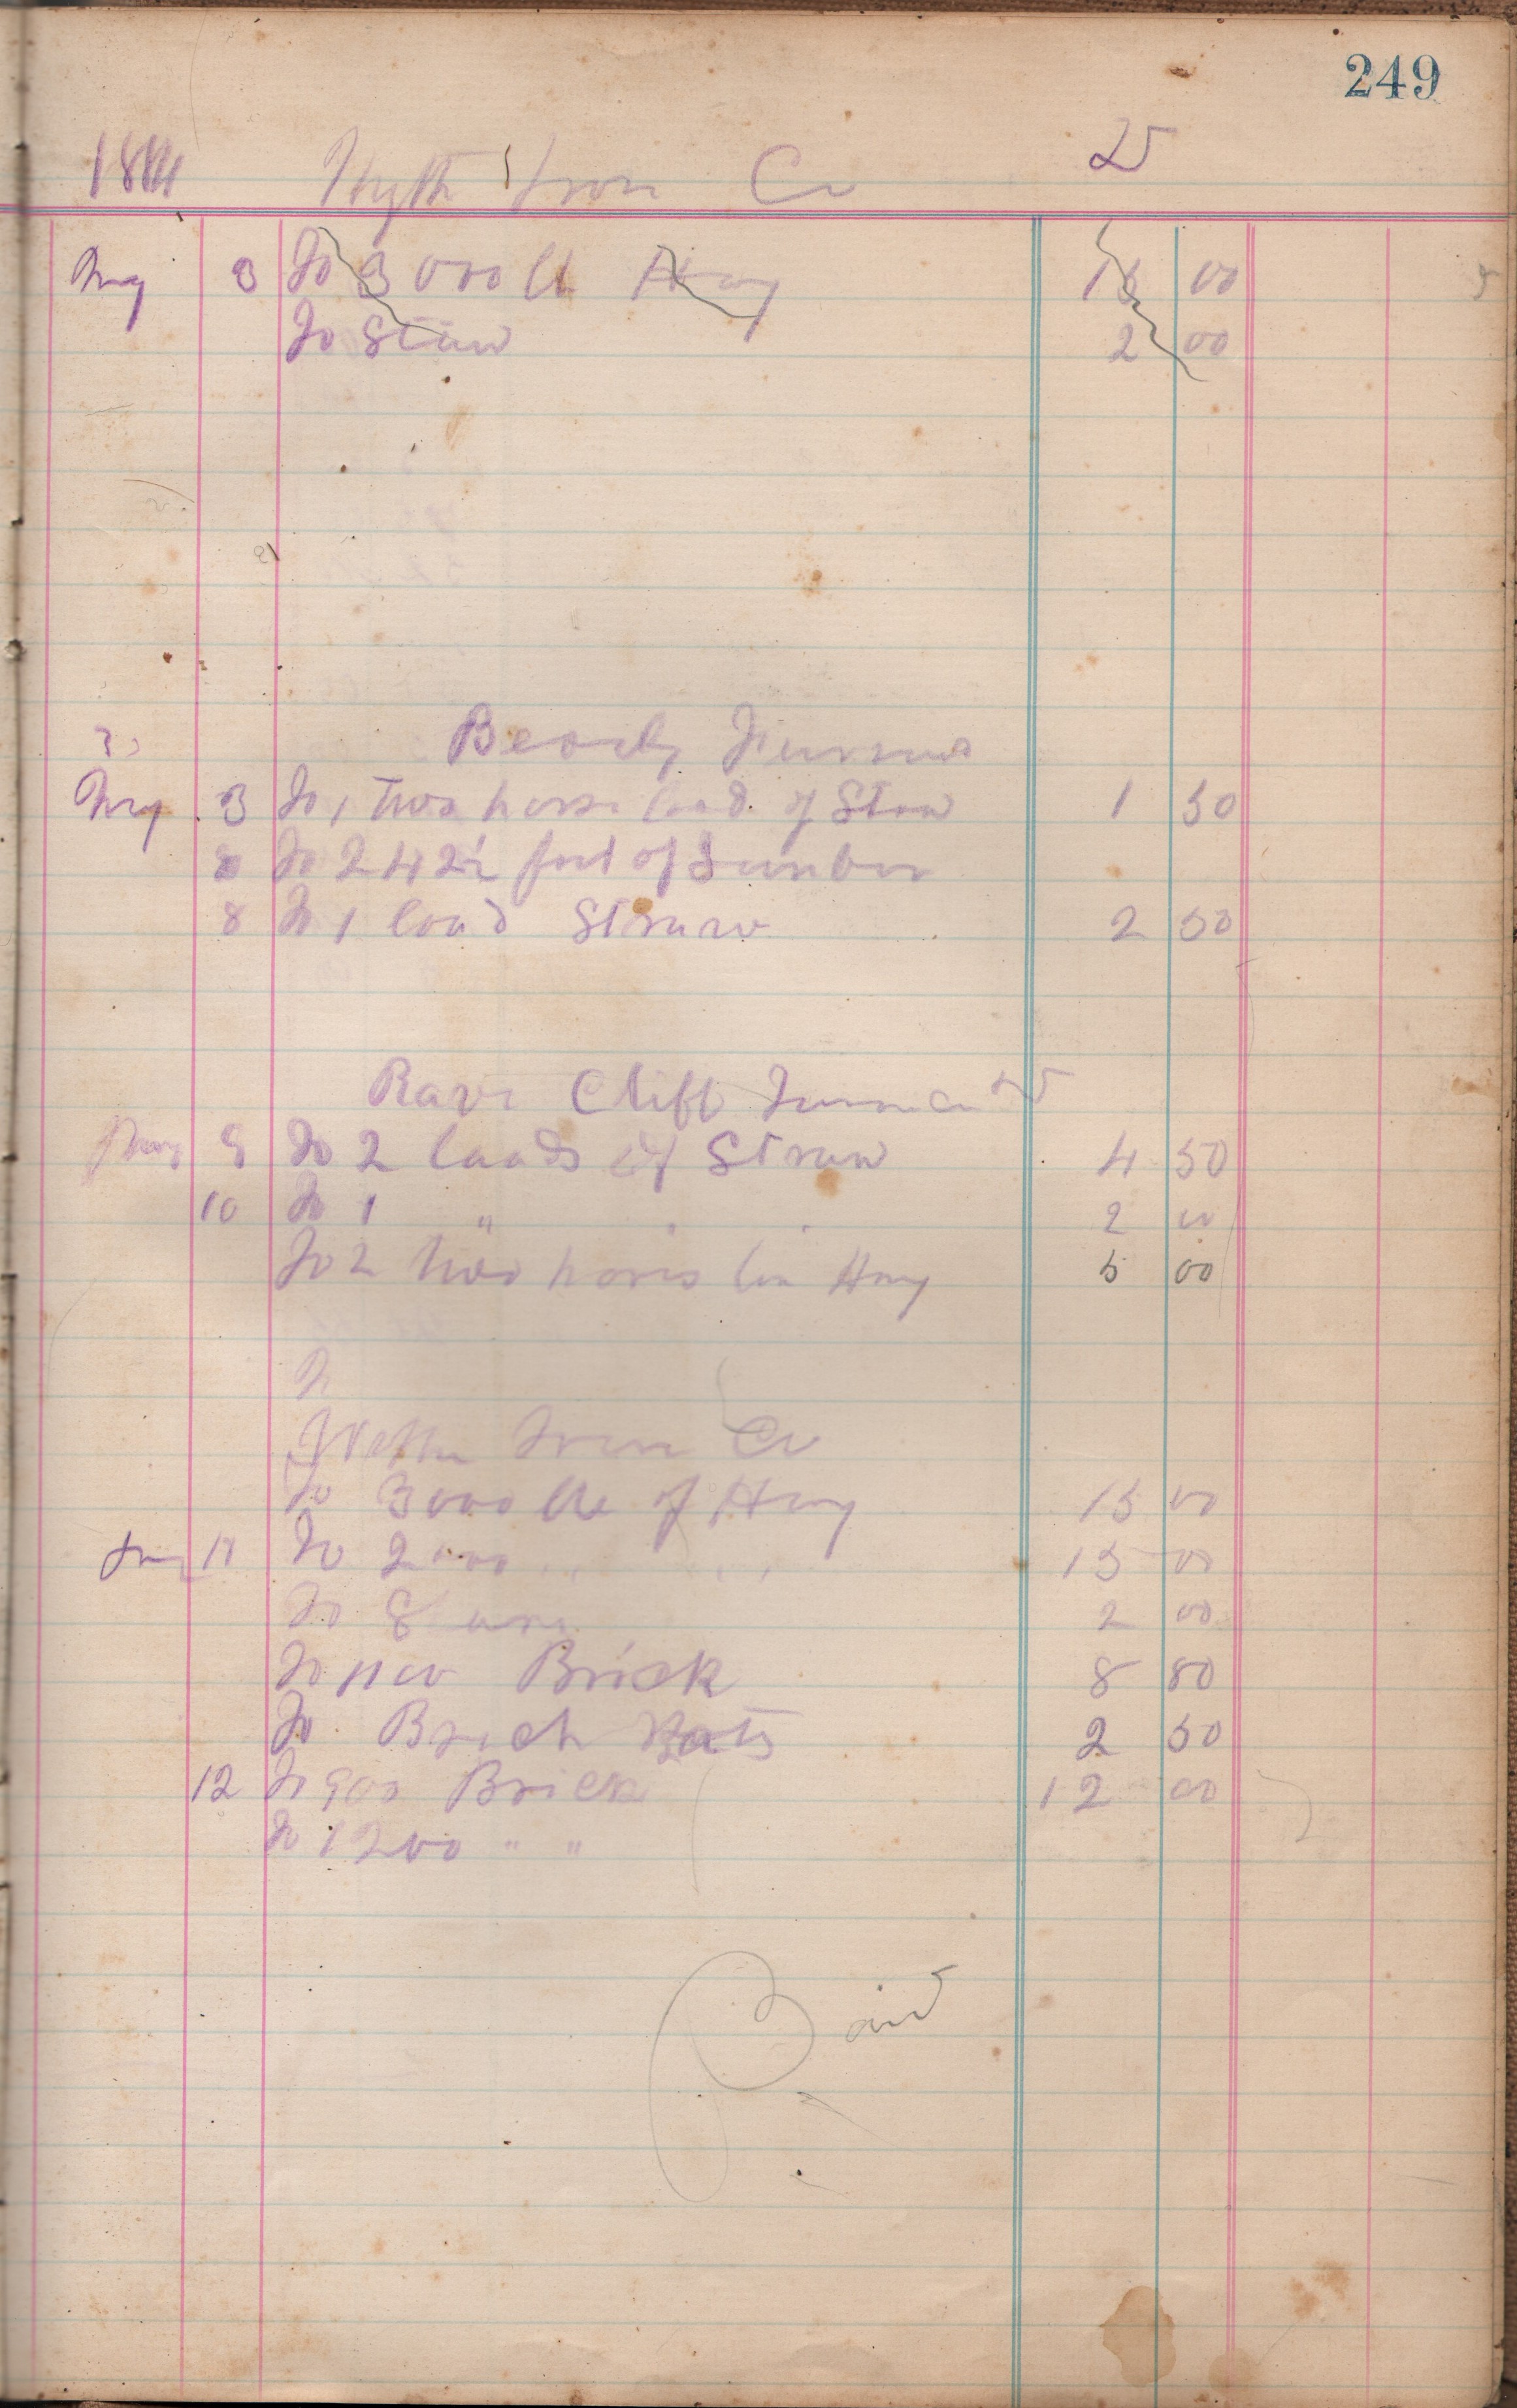 249
Iron Co
May 3 To 3000 lb Hay 15 00
To Straw 2 00
May 3 To 1 Two horse load of Straw 1 50
8 To 242½ feet of Lumber
8 To 1 load Straw 2 50
Rave Cliff Furnace
9 To 2 loads of Straw 4 50
10 To 1 " 2 00
To 2 two horse Hay 5 00
Iron Co
To 3000 lbs of Hay 15 00
11 To 15 00
To 2 00
To 1100 Brick 8 80
To Brick Bats 2 50
12 To 900 Brick 12 00
To 1200 " "
Paid